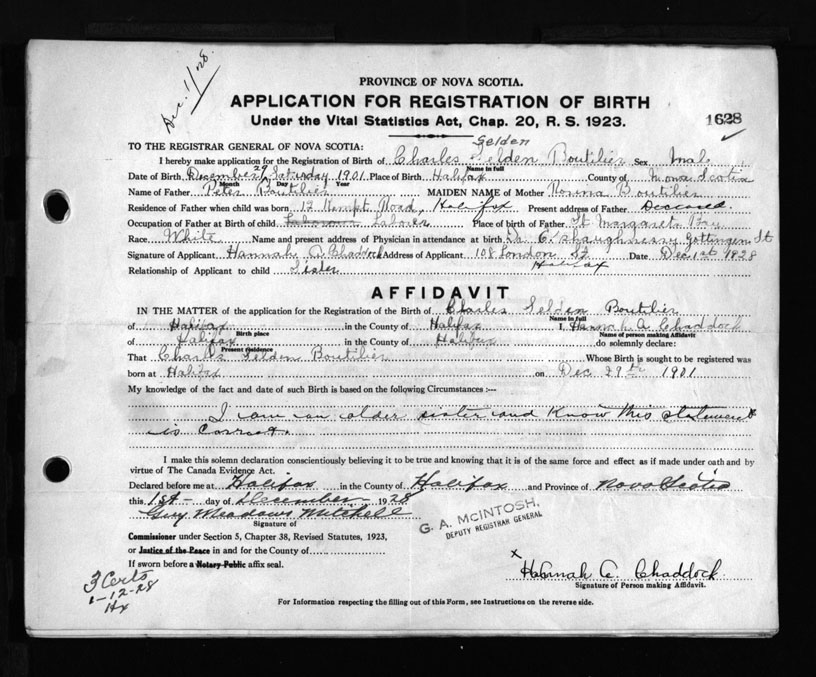 Dec. 1/28.
PROVINCE OF NOVA SCOTIA.
APPLICATION FOR REGISTRATION OF BIRTH
Under the Vital Statistics Act, Chap. 20, R. S. 1923.
1628
TO THE REGISTRAR GENERAL OF NOVA SCOTIA:
Selden
I hereby make application for the Registration of Birth of Charles Selden Boutilier Sex Male
Name in full
Date of Birth December 29 Saturday 1901 Place of Birth Halifax County of
Month Day Year
Name of Father Peter Boutilier MAIDEN NAME of Mother Boutilier
Residence of Father when child was born 12 Kempt Road, Halifax Present address of Father Deceased.
Occupation of Father at Birth of child Laborer Place of birth of Father St. Margarets Bay
Race White Name and present address of Physician in attendance at birth Dr. O'Shaughnessy Gottingen St
Signature of Applicant Hannah A Chaddock Address of Applicant 108 London St Date Dec 1st 1928
Halifax
Relationship of Applicant to child Sister
AFFIDAVIT
IN THE MATTER of the application for the Registration of the Birth of Charles Selden Boutilier
Name in full
of Halifax in the County of Halifax I, Hannah A. Chaddock
Birth place Name of person making Affidavit
of Halifax in the County of Halifax do solemnly declare:
Present residence
That Charles Selden Boutilier Whose Birth is sought to be registered was
born at Halifax on Dec 29th 1901
My knowledge of the fact and date of such Birth is based on the following Circumstances :—
I am an older sister and know this statement
is correct.
I make this solemn declaration conscientiously believing it to be true and knowing that it is of the same force and effect as if made under oath and by
virtue of The Canada Evidence Act.
Declared before me at Halifax in the County of Halifax and Province of Nova Scotia
this 1st day of December 1928
Guy Meadows Mitchell
Signature of
G. A. McINTOSH,
DEPUTY REGISTRAR GENERAL
Commissioner under Section 5, Chapter 38, Revised Statutes, 1923,
or Justice of the Peace in and for the County of
If sworn before a Notary Public affix seal.
x Hannah A. Chaddock
Signature of Person making Affidavit.
3 Certs
1-12-28
Hx
For Information respecting the filling out of this Form, see Instructions on the reverse side.